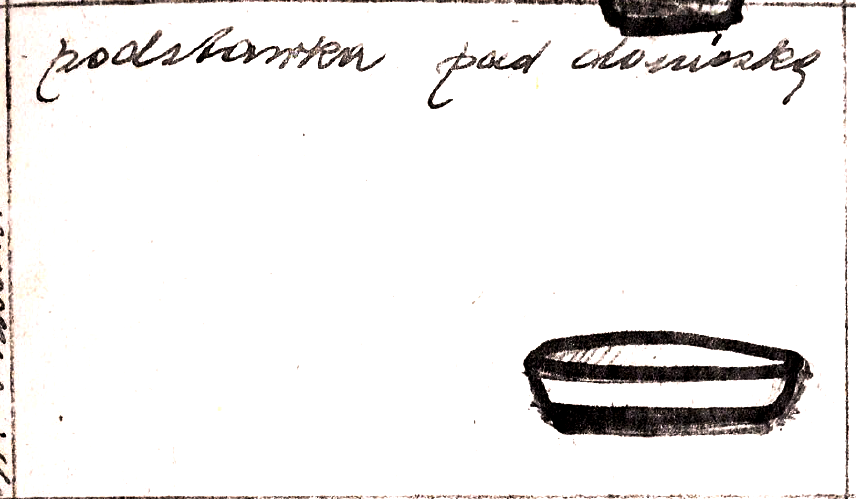 podstawka pod doniczkę